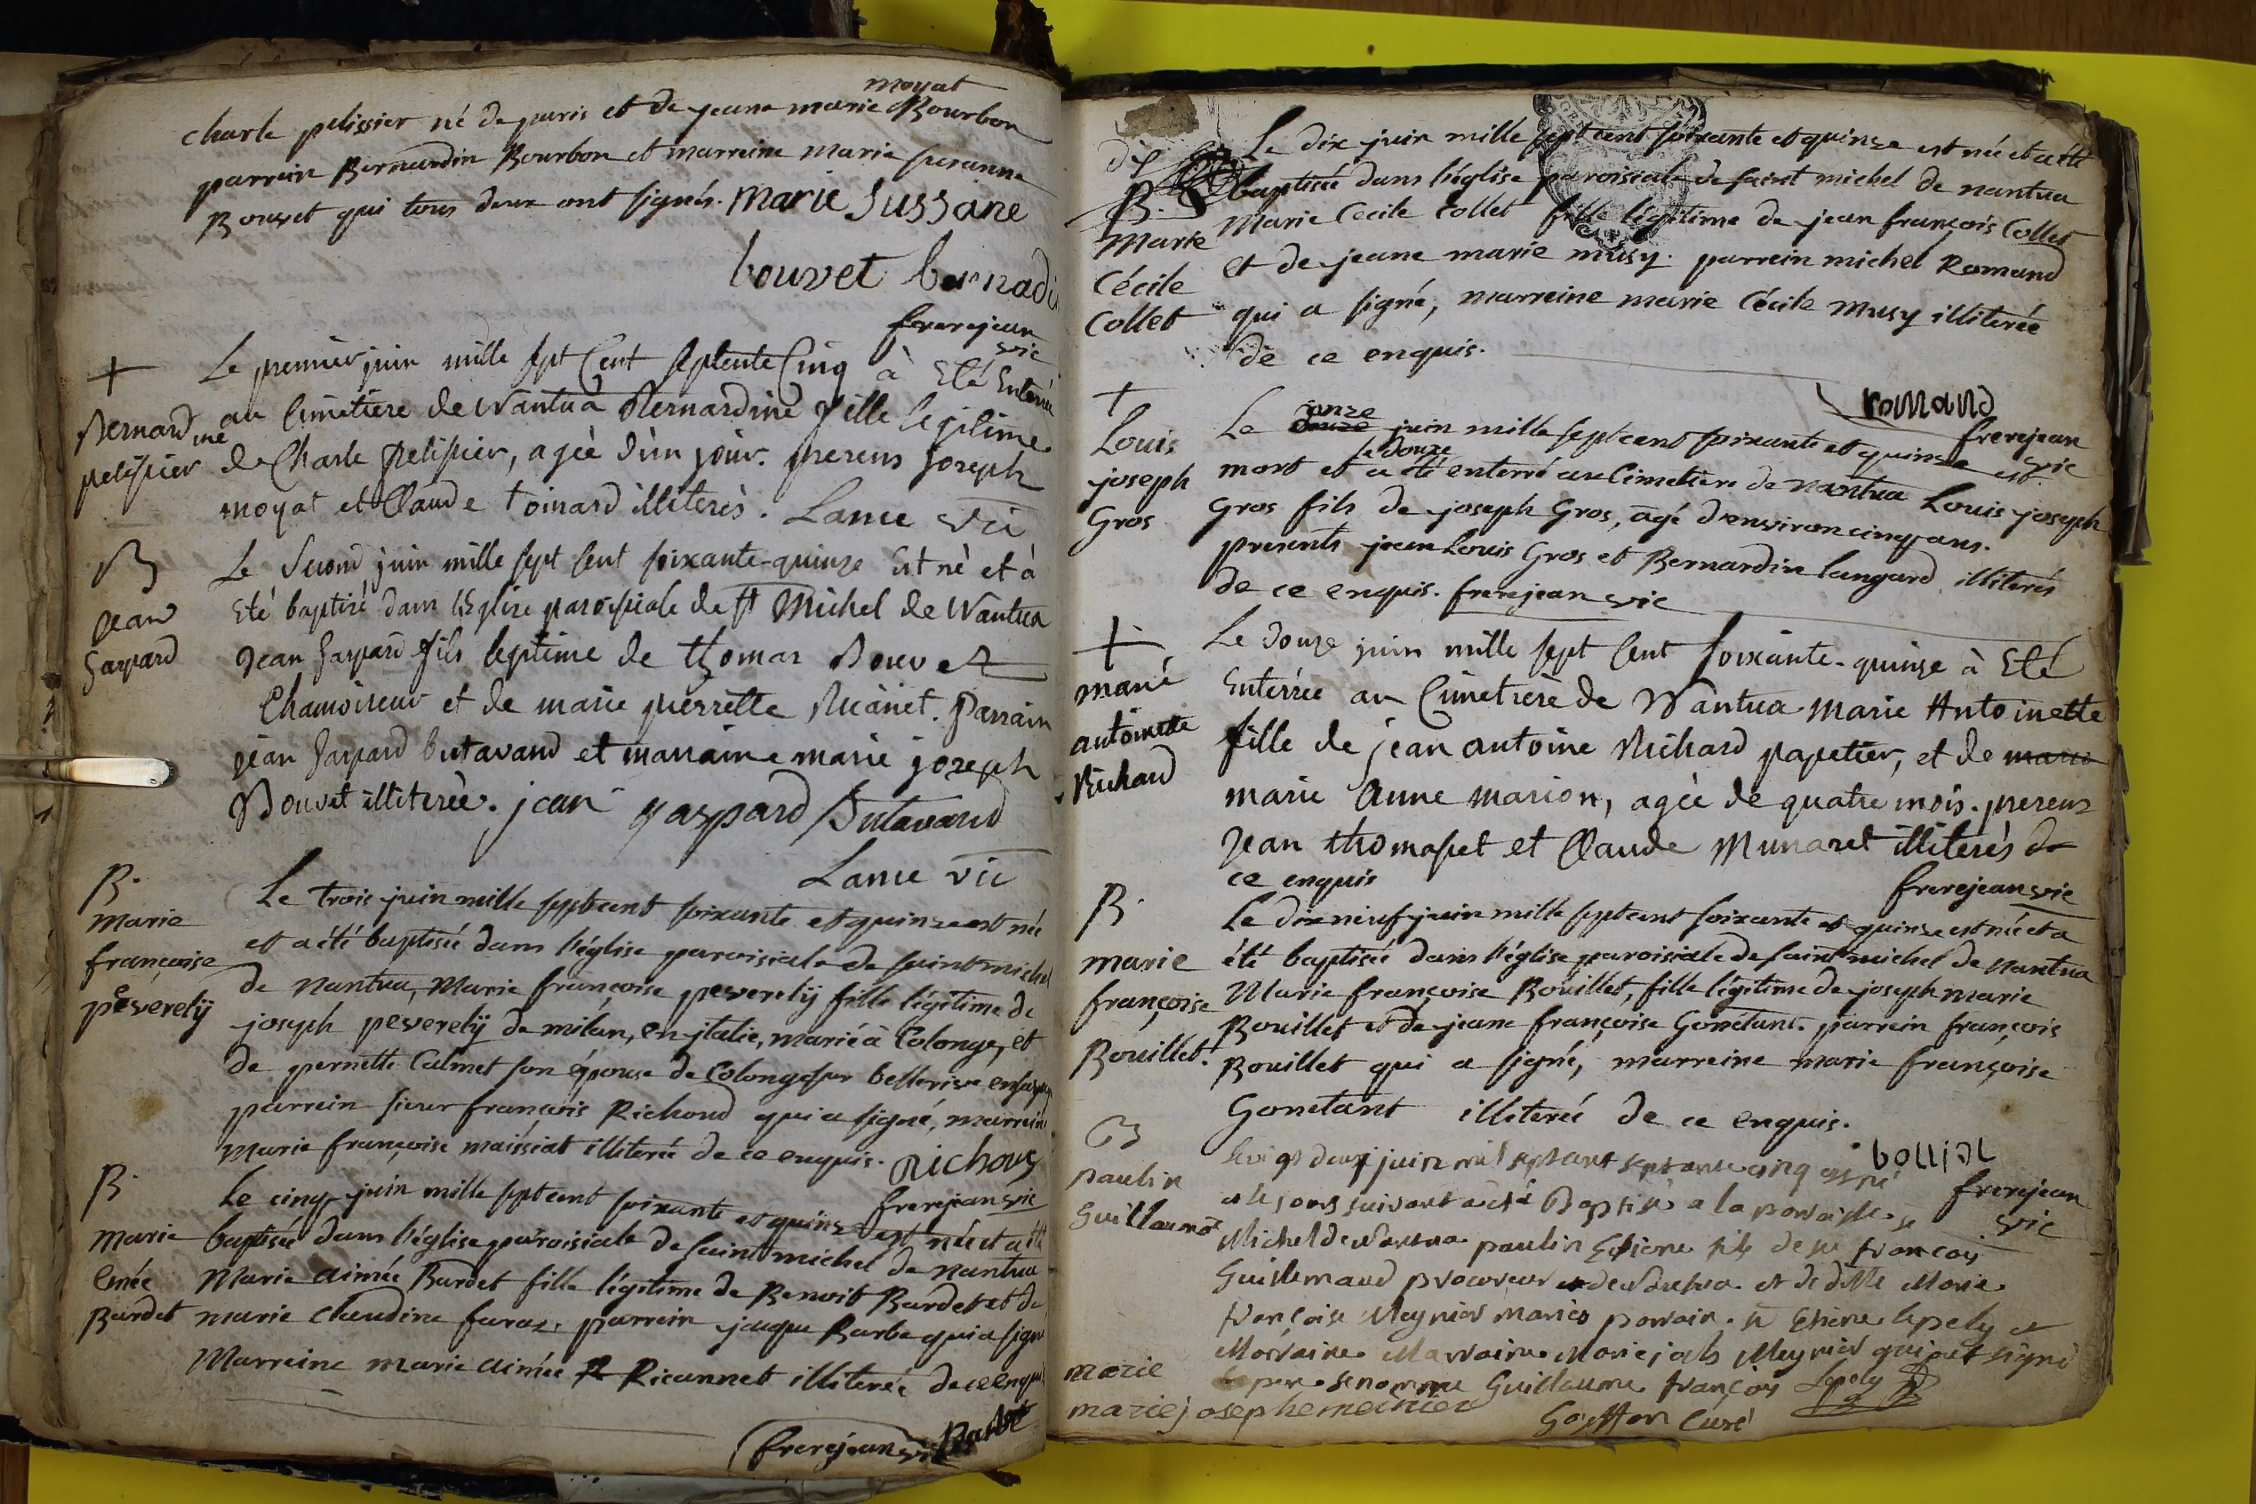 moyat
charle pelissier né de paris et de jeane marie Bourbon
parrein Bernardin Bourbon et marreine marie suranne
Bouvet qui tous deux ont signés. marie sussane
bouvet bernadi
frerejean
vic
+
Bernardine
pelissier
Le premier juin mille sept Cent septente Cinq à Eté Enterrée
au Cimetiere de Nantua Bernardine fille legitime
de Charle pelissier, agèe d'un jour. presens joseph
moyat et Claude toinard illiterès. Lance vic
B
Jean
Gaspard
Le second juin mille sept sent soixante-quinze Est nè et à
Eté baptisé dans l'Eglise paroissiale de St Michel de Nantua
Jean Gaspard fils legitime de thomas Bouvet
Chamoiseur et de marie pierrette Ruanet. Parrain
jean Gaspard butavand et marraine marie joseph
Bouvet illiterèe. jean gaspard Butavand
Lance vic
B.
marie
françoise
peverelÿ
Le trois juin mille septcent soixante et quinze est née
et a été baptisée dans l'église paroisiale de saint michel
de nantua, Marie françoise peverelÿ fille légitime de
joseph peverelÿ de milan, en jtalie, marié à Colonge, et
de pernette Calmet son épouse de Colonge sur bellerive
parrein sieur françois Richond qui a signé, marreine
Marie françoise maissiat illiterée de ce enquis. Richond
frerejean vic
B.
marie
emée
Burdet
Le cinq juin mille septcent soixante et quinze est née et a été
baptisée dans l'église paroisiale de saint michel de nantua
Marie aimée Burdet fille légitime de Benoit Burdet et de
marie claudine faraz. parrein jaque Barbe qui a signé
Marreine marie aimée Ricannet illiterée de ce enquis
frerejean vic
dix
B.
Marie
Cécile
Collet
Le dix juin mille sept cent soixante et quinze est née et a été
baptisée dans l'église paroisiale de saint michel de nantua
Marie Cecile Collet fille légitime de jean françois Collet
et de jeane marie musy. parrein michel Romand
qui a signé, marreine marie Cécile Musy illiterée
de ce enquis.
romand
frerejean
vic
+
Louis
joseph
Gros
Le onze juin mille septcent soixante et quinze est
mort et le douze a été enterré au Cimetiere de nantua Louis joseph
Gros fils de joseph Gros, agé d'environ cinq ans.
presents jean Louis Gros et Bernardin Langard illiterés
de ce enquis. frerejean vic
+
marie
antoinette
Richard
Le Douze juin mille sept Cent soixante-quinze à Eté
Enterrée au Cimetiere de Nantua Marie Antoinette
fille de jean antoine Richard papetier, et de marie
marie Anne marion, agèe de quatre mois. presens
Jean thomasset et Claude Munaret illiterès de
ce enquis
frerejean vic
B.
marie
françoise
Boüillet.
Le dix neuf juin mille septcent soixante et quinze est née et a
été baptisée dans l'église paroisiale de saint michel de nantua
Marie françoise Boüillet, fille légitime de joseph marie
Bouillet et de jeane françoise Gonétant. parrein françois
Bouillet qui a signé, marreine marie françoise
Gonetant illiterée de ce enquis.
frerejean
vic
B
paulin
Guillaume
juin mil septcent septante cinq est né
et le jours suivant a eté Baptisé a la paroisse st
Michel de Nantua paulin Etiene fils de sr françois
Guillemaud procureur de Nantua et de dlle Marie
françoise Meynier mariés parrain sr Etiene lepely et
Marraine Marraine Marie Meynier qui ont signé
le pere se nomme Guillaume françois Lepely
marie
marie josephe meinier
Goiffon Curé